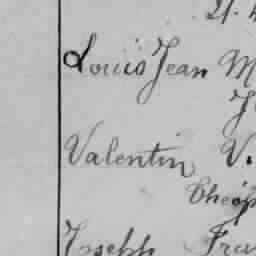 Louis Jean M
Valentin V.
Joseph Fra